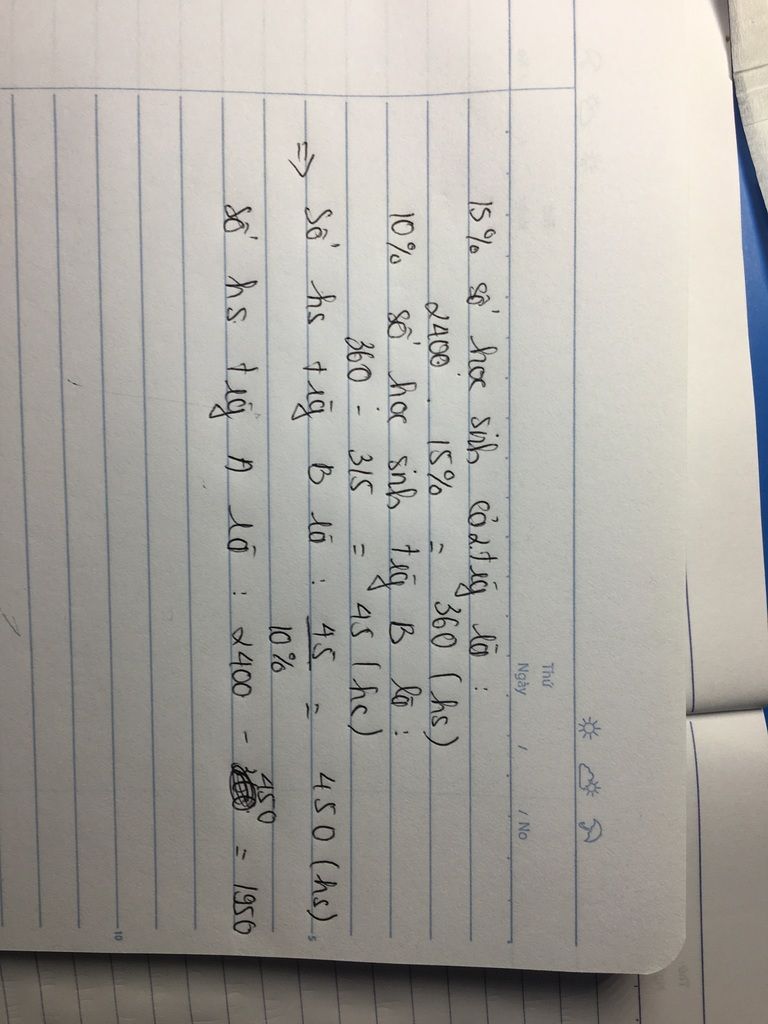 Thứ
Ngày / / No
15% số học sinh cả 2 trg là :
2400 . 15% = 360 (hs)
10% số học sinh trg B là :
360 - 315 = 45 (hs)
=> Số hs trg B là : 45 / 10% = 450 (hs)
5
số hs trg A là : 2400 - 450 = 1950
10